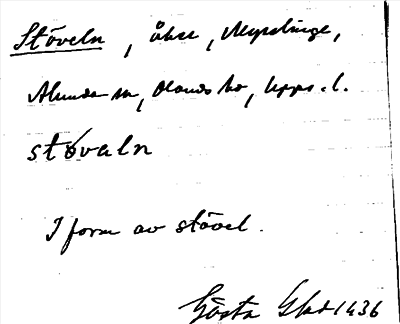 Stöveln, åker, Myselinge,
Alunda sn, Olands hd, Upps. l.
stövaln
I form av stövel.
Gösta Glad 1936